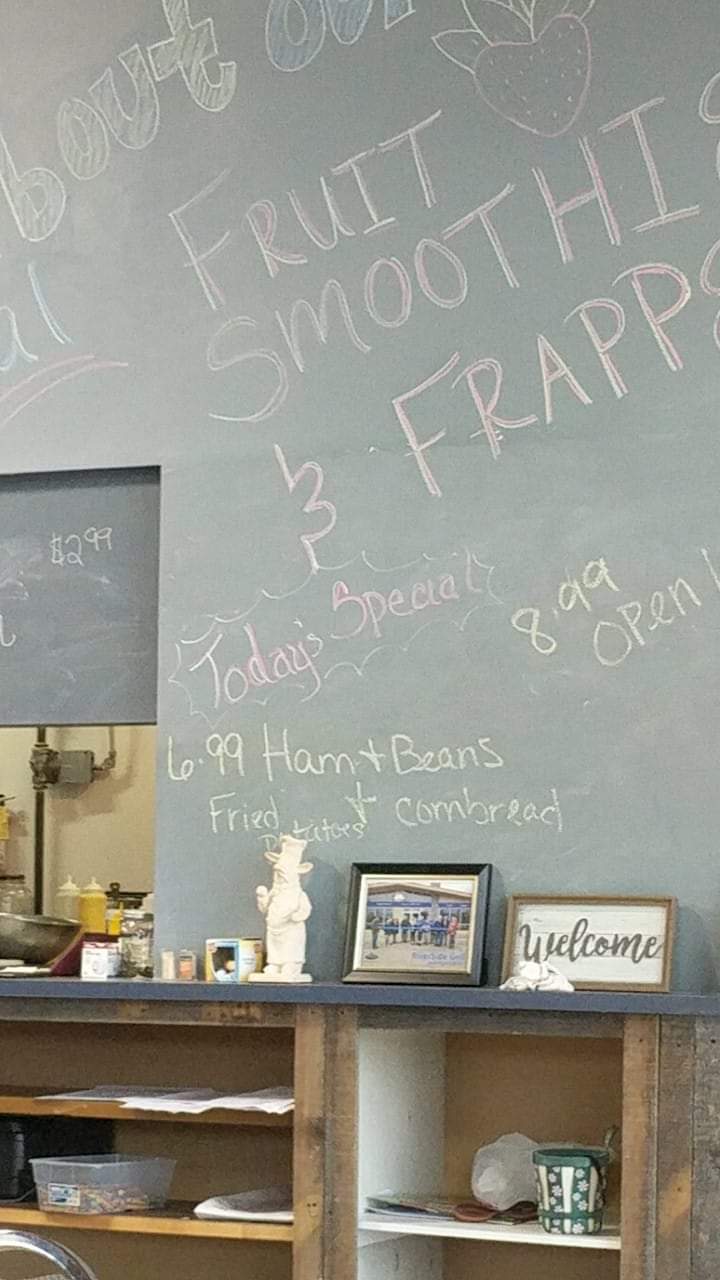 bout our
al
FRUIT
SMOOTHI
& FRAPPS
$2.99
Today's Special
8.99
OPEN
6.99 Ham + Beans
Fried Potatoes + Cornbread
Welcome